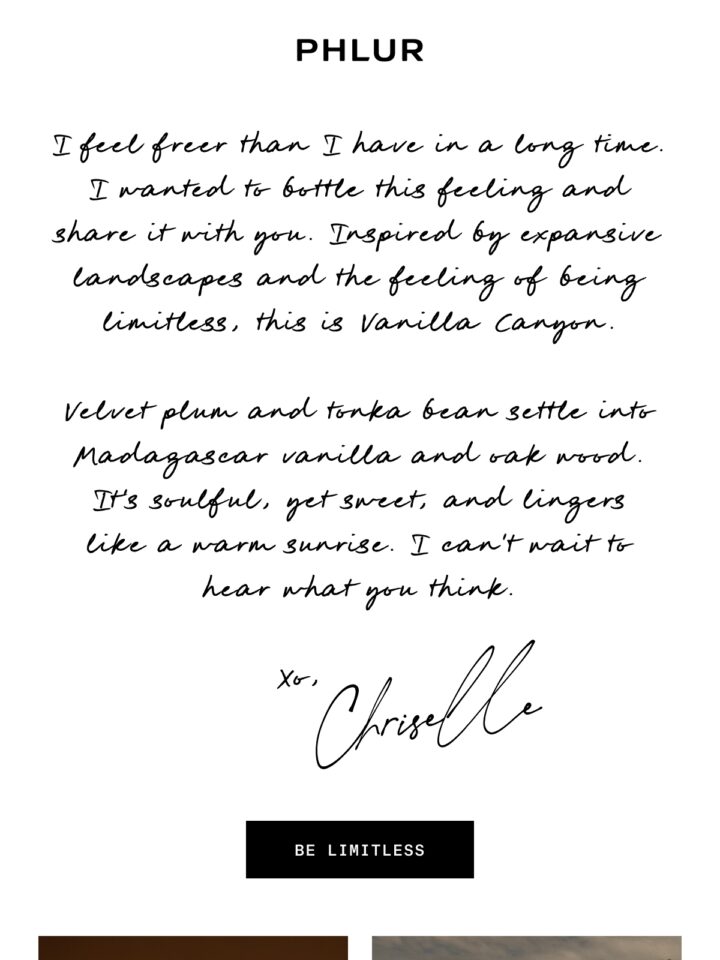 PHLUR
I feel freer than I have in a long time.
I wanted to bottle this feeling and
share it with you. Inspired by expansive
landscapes and the feeling of being
limitless, this is Vanilla Canyon.
Velvet plum and tonka bean settle into
Madagascar vanilla and oak wood.
It's soulful, yet sweet, and lingers
like a warm sunrise. I can't wait to
hear what you think.
xo,
Chriselle
BE LIMITLESS